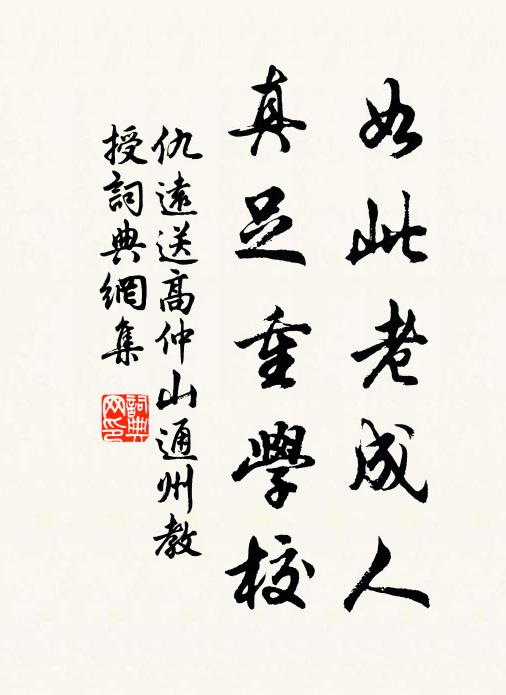 如此老成人
真足重學校
仇遠送高仲山通州教
授詞典網集
詞典
网印